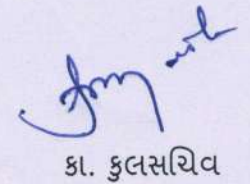 કા. કુલસચિવ